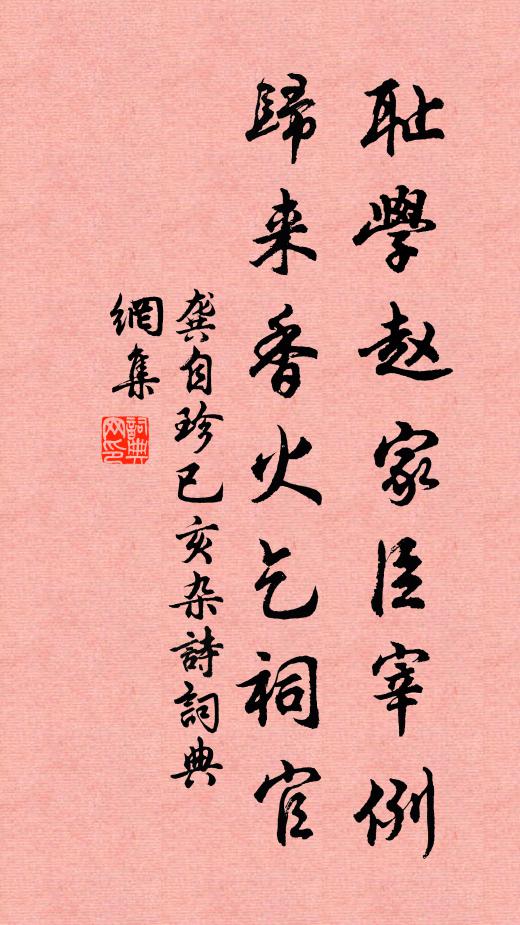 耻學赵家臣宰例
歸来香火乞祠官
龚自珍己亥杂詩詞典
網集
詞典
网印